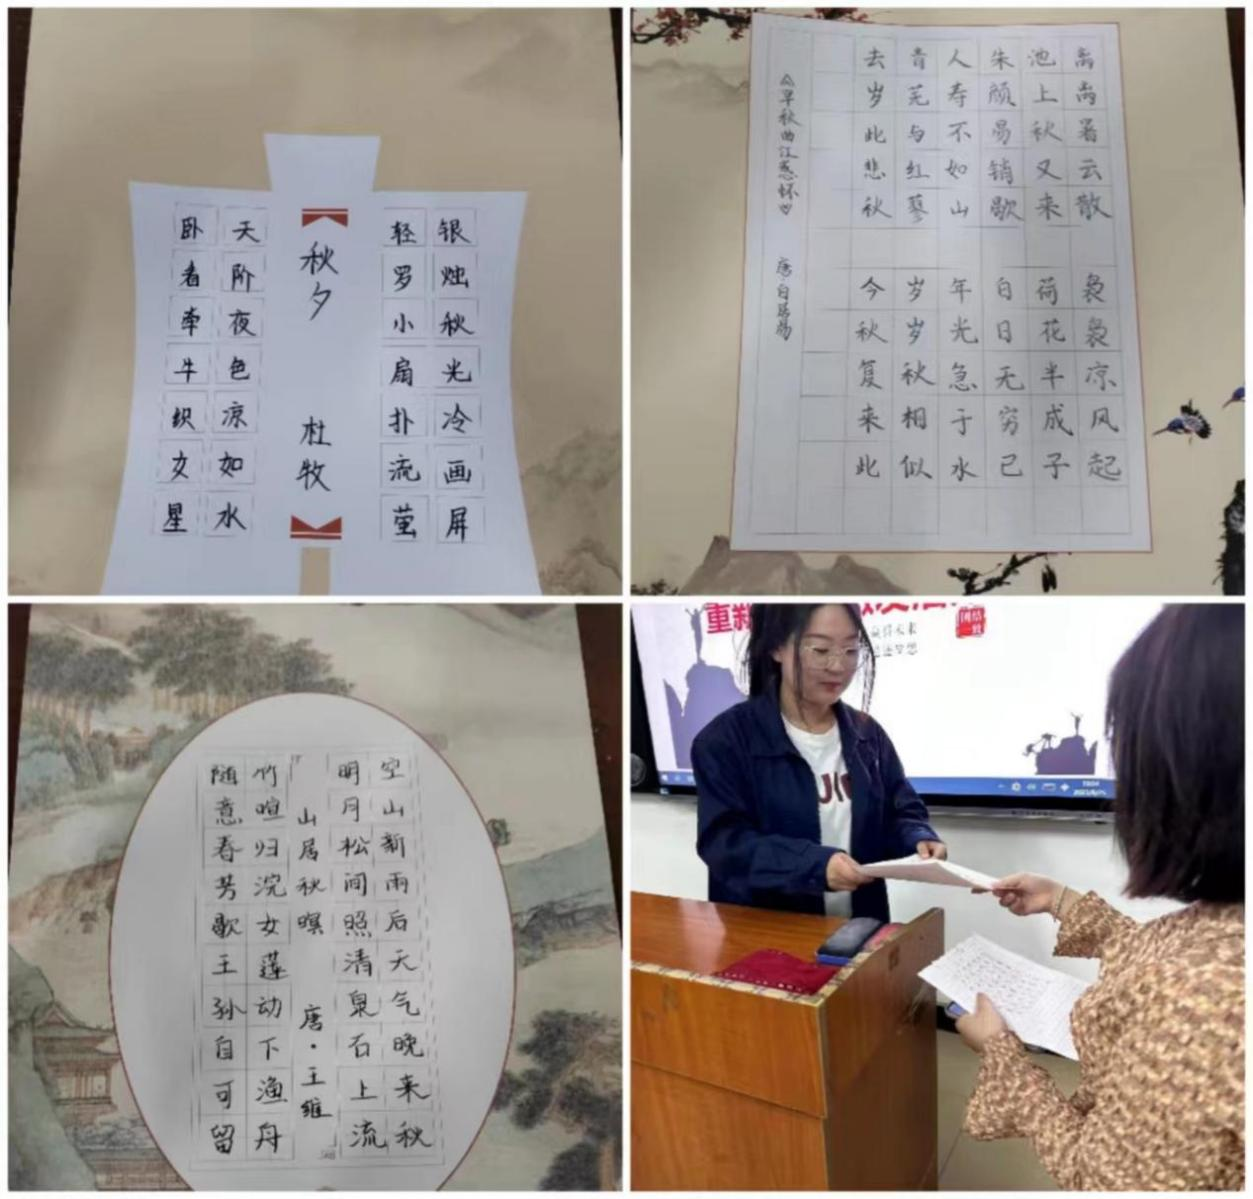 银烛秋光冷画屏
轻罗小扇扑流萤
秋夕 杜牧
天阶夜色凉如水
卧看牵牛织女星
离离暑云散 袅袅凉风起
池上秋又来 荷花半成子
朱颜易销歇 白日无穷已
人寿不如山 年光急于水
青芜与红蓼 岁岁秋相似
去岁此悲秋 今秋复来此
《早秋曲江感怀》 唐·白居易
空山新雨后天气晚来秋
明月松间照清泉石上流
山居秋暝 唐·王维
竹喧归浣女莲动下渔舟
随意春芳歇王孙自可留
重新
团结一致
未来
梦想